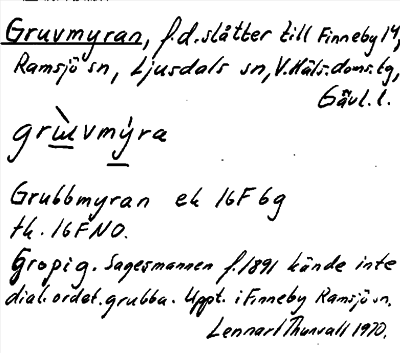 Gruvmyran, f.d. slåtter till Finneby 14,
Ramsjö sn, Ljusdals sn, V. Häls. doms. tg,
Gävl. l.
grùvmýra
Grubbmyran ek 16F 6g
tk. 16F NO.
Gropig. Sagesmannen f. 1891 kände inte
dial. ordet grubba. Uppt. i Finneby Ramsjö sn.
Lennart Thurvall 1970.